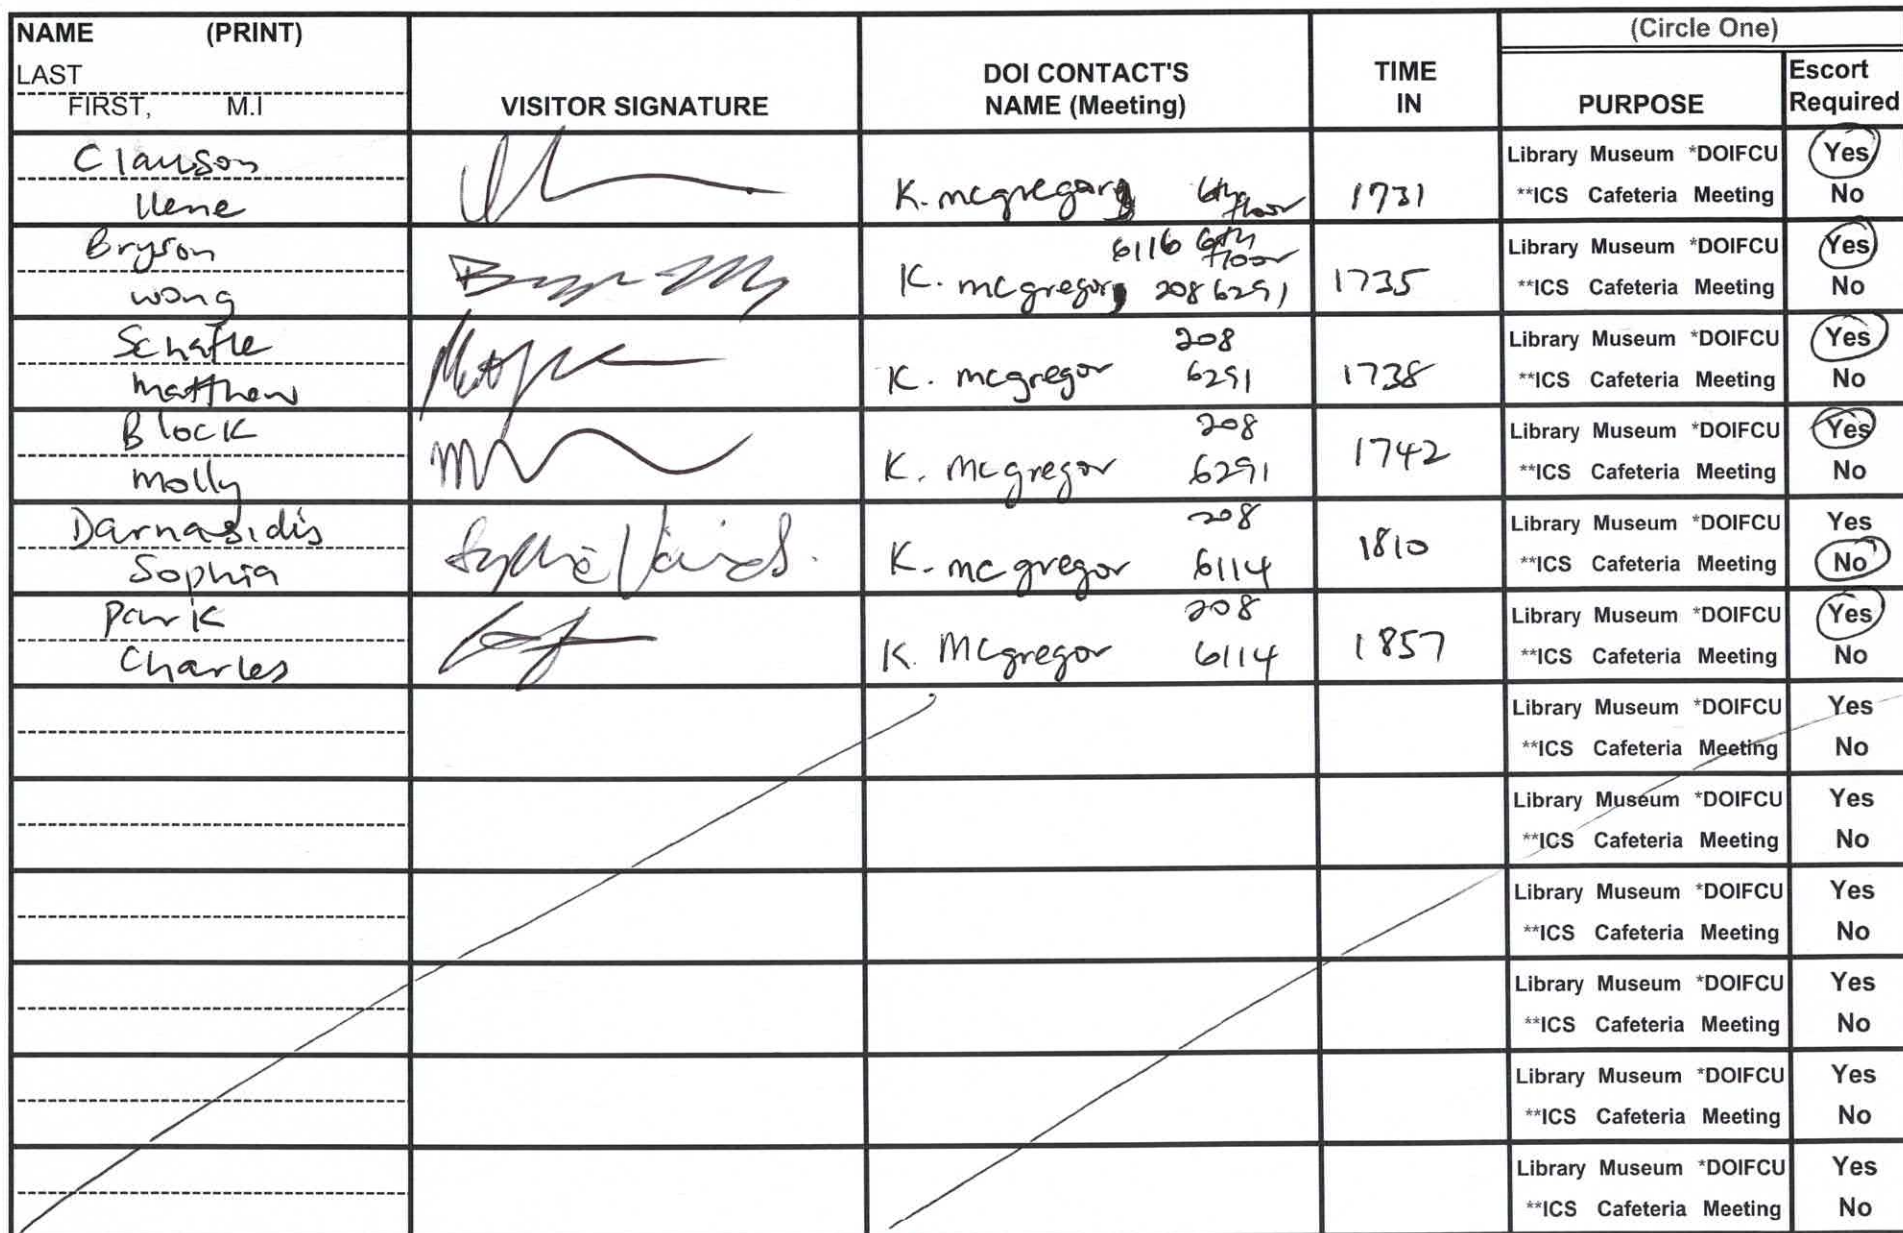 NAME (PRINT)
LAST
FIRST, M.I
VISITOR SIGNATURE
DOI CONTACT'S
NAME (Meeting)
TIME
IN
(Circle One)
PURPOSE
Escort
Required
Clauson
Ilene
K. mcgregor 6th
floor
1731
Library Museum *DOIFCU Yes
**ICS Cafeteria Meeting No
Bryson
wong
6116 6th
floor
K. mcgregor 208 6291
1735
Library Museum *DOIFCU Yes
**ICS Cafeteria Meeting No
Schafle
matthew
208
K. mcgregor 6291
1738
Library Museum *DOIFCU Yes
**ICS Cafeteria Meeting No
Block
molly
208
K. mcgregor 6291
1742
Library Museum *DOIFCU Yes
**ICS Cafeteria Meeting No
Darnasidis
Sophia
208
K. mcgregor 6114
1810
Library Museum *DOIFCU Yes
**ICS Cafeteria Meeting No
Park
Charles
208
K. Mcgregor 6114
1857
Library Museum *DOIFCU Yes
**ICS Cafeteria Meeting No
Library Museum *DOIFCU Yes
**ICS Cafeteria Meeting No
Library Museum *DOIFCU Yes
**ICS Cafeteria Meeting No
Library Museum *DOIFCU Yes
**ICS Cafeteria Meeting No
Library Museum *DOIFCU Yes
**ICS Cafeteria Meeting No
Library Museum *DOIFCU Yes
**ICS Cafeteria Meeting No
Library Museum *DOIFCU Yes
**ICS Cafeteria Meeting No